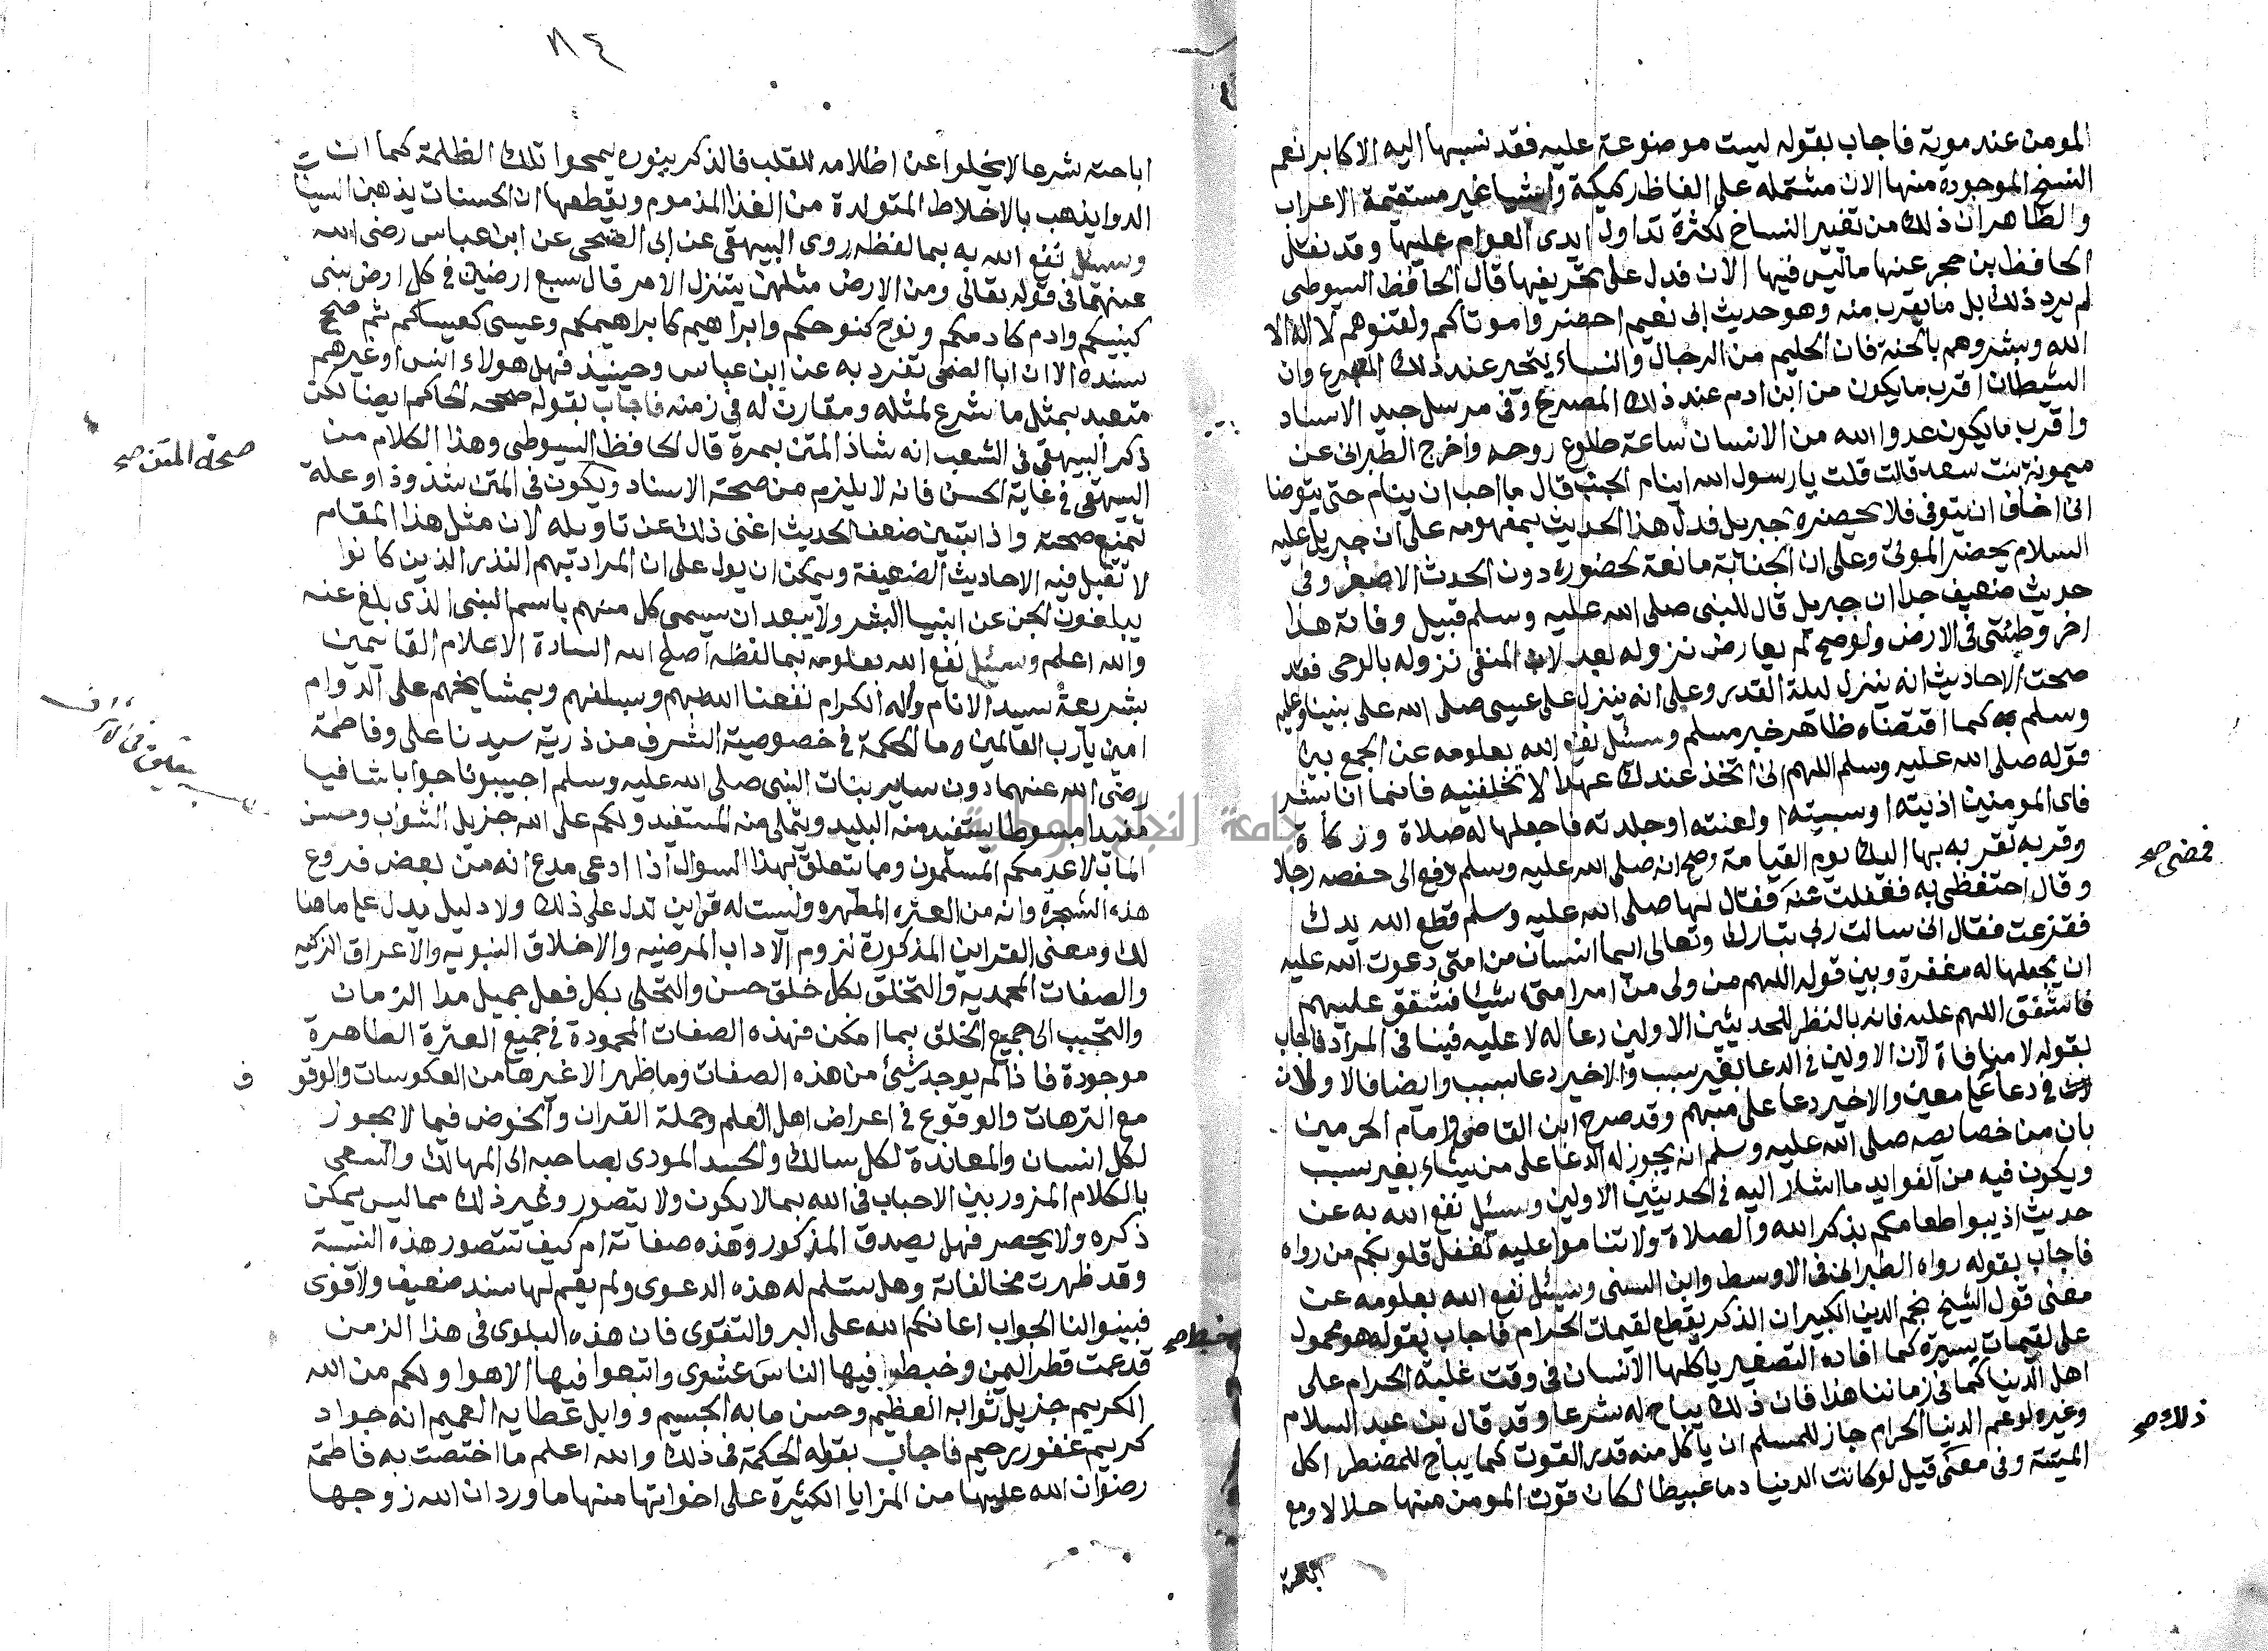 المومن عند موته فاجاب بقوله ليست موضوعة عليه فقد نسبها اليه الاكابر نعم
النسخ الموجوده منها الان مشتمله على الفاظ ركيكة واشيا غير مستقيمة الاعراب
والظاهر ان ذلك من تغيير النساخ لكثرة تداول ايدى العوام عليها وقد نقل
الحافظ بن حجر عنها ما ليس فيها الان فدل على تحريفها قال الحافظ السيوطى
لم يرد ذلك بل ما يقرب منه وهو حديث ابى نعيم احضروا موتاكم ولقنوهم لا اله الا
الله وبشروهم بالجنة فان الحليم من الرجال والنساء يتحير عند ذلك المصرع وان
الشيطان اقرب ما يكون من ابن ادم عند ذلك المصرع وفى مرسل جيد الاسناد
واقرب ما يكون عدوا الله من الانسان ساعة طلوع روحه واخرج الطبرانى عن
ميمونة بنت سعد قالت قلت يا رسول الله اينام الجنب قال ما احب ان ينام حتى يتوضا
انى اخاف ان يتوفى فلا يحضره جبريل فدل هذا الحديث بمفهومه على ان جبريل عليه
السلام يحضر الموتى وعلى ان الجنابة مانعة لحضوره دون الحدث الاصغر وفى
حديث ضعيف جدا ان جبريل قال للنبى صلى الله عليه وسلم قبيل وفاته هذا
اخر وطئتى فى الارض ولو صح لم يعارض نزوله بعد لان المنفى نزوله بالوحى فقد
صحت الاحاديث انه ينزل ليلة القدر وعلى انه ينزل على عيسى صلى الله على نبينا وعليه
وسلم به كما اقتضاه ظاهر خبر مسلم وسئل نفع الله بعلومه عن الجمع بين
قوله صلى الله عليه وسلم اللهم انى اتخذ عندك عهدا لا تخلفنيه فانما انا بشر
فاى المومنين اذيته او سببته او لعنته او جلدته فاجعلها له صلاة وزكاة
وقربه تقربه بها اليك يوم القيامة وصح انه صلى الله عليه وسلم دفع الى حفصه رجلا
فمضى صح
وقال احتفظى به فغفلت عنه فقال لها صلى الله عليه وسلم قطع الله يدك
ففزعت فقال انى سالت ربى تبارك وتعالى ايما انسان من امتى دعوت الله عليه
ان يجعلها له مغفرة وبين قوله اللهم من ولى من امر امتى شيئا فشفق عليهم
فاشفق اللهم عليه فانه بالنظر للحديثين الاولين دعا له لا عليه فينافى المراد فاجاب
بقوله لا منافاة لان الاولين فى الدعا بغير سبب والاخير دعا بسبب وايضا فالاولان
فى دعا على معين والاخير دعا على مبهم وقد صرح ابن القاضى وامام الحرمين
بان من خصايصه صلى الله عليه وسلم انه يجوز له الدعا على من يشاء بغير سبب
ويكون فيه من الفوايد ما اشار اليه فى الحديثين الاولين وسئل نفع الله به عن
حديث اذيبوا طعامكم بذكر الله والصلاة ولا تناموا عليه تغفل قلوبكم من رواه
فاجاب بقوله رواه الطبرانى فى الاوسط وابن السنى وسئل نفع الله بعلومه عن
معنى قول الشيخ نجم الدين الكبير ان الذكر يقطع لقيمات الحرام فاجاب بقوله هو محمول
على لقيمات يسيرة كما افاده التصغير ياكلها الانسان فى وقت غلبة الحرام على
اهل الدنيا كما فى زماننا هذا فان ذلك يباح له شرعا وقد قال بن عبد السلام
ذلك صح
وغيره لو عم الدنيا الحرام جاز للمسلم ان ياكل منه قدر القوت كما يباح للمضطر اكل
الميتة وفى معنى قيل لو كانت الدنيا دما عبيطا لكان قوت المومن منها حلالا ومع
اباحته
٨٤
اباحته شرعا لا يخلوا عن اظلامه للقلب فالذكر بنوره يمحوا تلك الظلمة كما ان
الدوا يذهب بالاخلاط المتولدة من الغذا المذموم ويقطعها ان الحسنات يذهبن السيئات
وسئل نفع الله به بما لفظه روى البيهقى عن ابى الضحى عن ابن عباس رضى الله
عنهما فى قوله تعالى ومن الارض مثلهن يتنزل الامر قال سبع ارضين فى كل ارض نبى
كنبيكم وادم كادمكم ونوح كنوحكم وابراهيم كابراهيمكم وعيسى كعيساكم ثم صحح
سنده الا ان ابا الضحى تفرد به عن ابن عباس وحينيذ فهل هولاء انس او غيرهم
متعبد بمثل ما شرع لمثله ومقارن له فى زمنه فاجاب بقوله صححه الحاكم ايضا لكن
ذكر البيهقى فى الشعب انه شاذ المتن بمرة قال الحافظ السيوطى وهذا الكلام من
صحة المتن صح
البيهقى فى غاية الحسن فانه لا يلزم من صحة الاسناد ويكون فى المتن شذوذ او علة
تمنع صحته واذا تبين ضعف الحديث اغنى ذلك عن تاويله لان مثل هذا المقام
لا تقبل فيه الاحاديث الضعيفة ويمكن ان يول على ان المراد بهم النذر الذين كانوا
يبلغون الجن عن انبيا البشر ولا يبعد ان يسمى كل منهم باسم النبى الذى بلغ عنه
والله اعلم وسئل نفع الله بعلومه بما لفظه اصلح الله السادة الاعلام القايمين
بشريعة سيد الانام واله الكرام نفعنا الله بهم وبسلفهم وبمشايخهم على الدوام
امين يا رب العالمين وما الحكمة فى خصوصية الشرف من ذرية سيدنا على وفاطمة
رضى الله عنهما دون ساير بنات النبى صلى الله عليه وسلم اجيبونا جوابا شافيا
مفيدا مبسوطا يستفيد منه البليد ويتملى منه المستفيد ولكم على الله جزيل الثواب وحسن
الماب لا عدمكم المسلمون وما يتعلق بهذا السوال اذا ادعى مدع انه من بعض فروع
هذه الشجرة وانه من العتره المطهره وليست له قراين تدل على ذلك ولا دليل يدل على ما هنا
لك ومعنى القراين المذكورة لزوم الاداب المرضيه والاخلاق النبويه والاعراق الزكيه
والصفات المحمديه والتخلق بكل خلق حسن والتحلى بكل فعل جميل مدا الزمان
والتحبب الى جميع الخلق بما امكن فهذه الصفات المحمودة فى جميع العترة الطاهرة
موجودة فاذا لم يوجد شئ من هذه الصفات وما ظهر الا غيرها من العكوسات والوقوف
مع الترهات والوقوع فى اعراض اهل العلم وحملة القران والخوض فيما لا يجوز
لكل انسان والمعاندة لكل سالك والحسد المودى بصاحبه الى المهالك والسعى
بالكلام المزور بين الاحباب فى الله بما لا يكون ولا يتصور وغير ذلك مما ليس يمكن
ذكره ولا يحصر فهل يصدق المذكور وهذه صفاته ام كيف تتصور هذه النسبة
وقد ظهرت مخالفاته وهل ستلم له هذه الدعوى ولم يقم لها سند ضعيف ولا قوى
فبينوا لنا الجواب اعانكم الله على البر والتقوى فان هذه البلوى فى هذا الزمن
قد عمت قطر اليمن وخبطوا فيها الناس عشوى واتبعوا فيها الاهوا ولكم من الله
الكريم جزيل ثوابه العظيم وحسن مابه الجسيم ووابل عطايه العميم انه جواد
كريم غفور رحيم فاجاب بقوله الحكمة فى ذلك والله اعلم ما اختصت به فاطمة
رضوان الله عليها من المزايا الكثيرة على اخواتها منها ما ورد ان الله زوجها
جامعة النجاح الوطنية